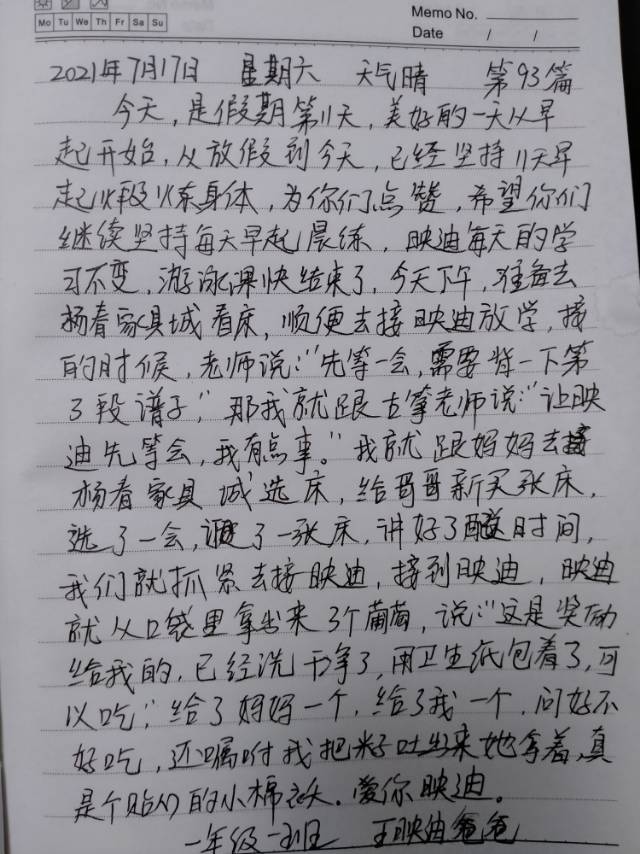 Memo No.
Mo Tu We Th Fr Sa Su
Date / /
2021年7月17日 星期六 天气晴 第93篇
今天，是假期第11天，美好的一天从早
起开始，从放假到今天，已经坚持11天早
起火段炼身体，为你们点赞，希望你们
继续坚持每天早起晨练，映迪每天的学
习不变，游泳课快结束了，今天下午，准备去
杨春家具城看床，顺便去接映迪放学，接
的时候，老师说：“先等一会，需要背一下第
3段谱子，”那我就跟古筝老师说：“让映
迪先等会，我有点事。”我就跟妈妈去
杨春家具城选床，给哥哥新买张床，
选了一会，了一张床，讲好了时间，
我们就抓紧去接映迪，接到映迪，映迪
就从口袋里拿出来3个葡萄，说：“这是奖励
给我的，已经洗干净了，用卫生纸包着了，可
以吃，”给了妈妈一个，给了我一个，问好不
好吃，还嘱咐我把籽吐出来她拿着，真
是个贴心的小棉袄。爱你映迪。
一年级一班 王映迪爸爸